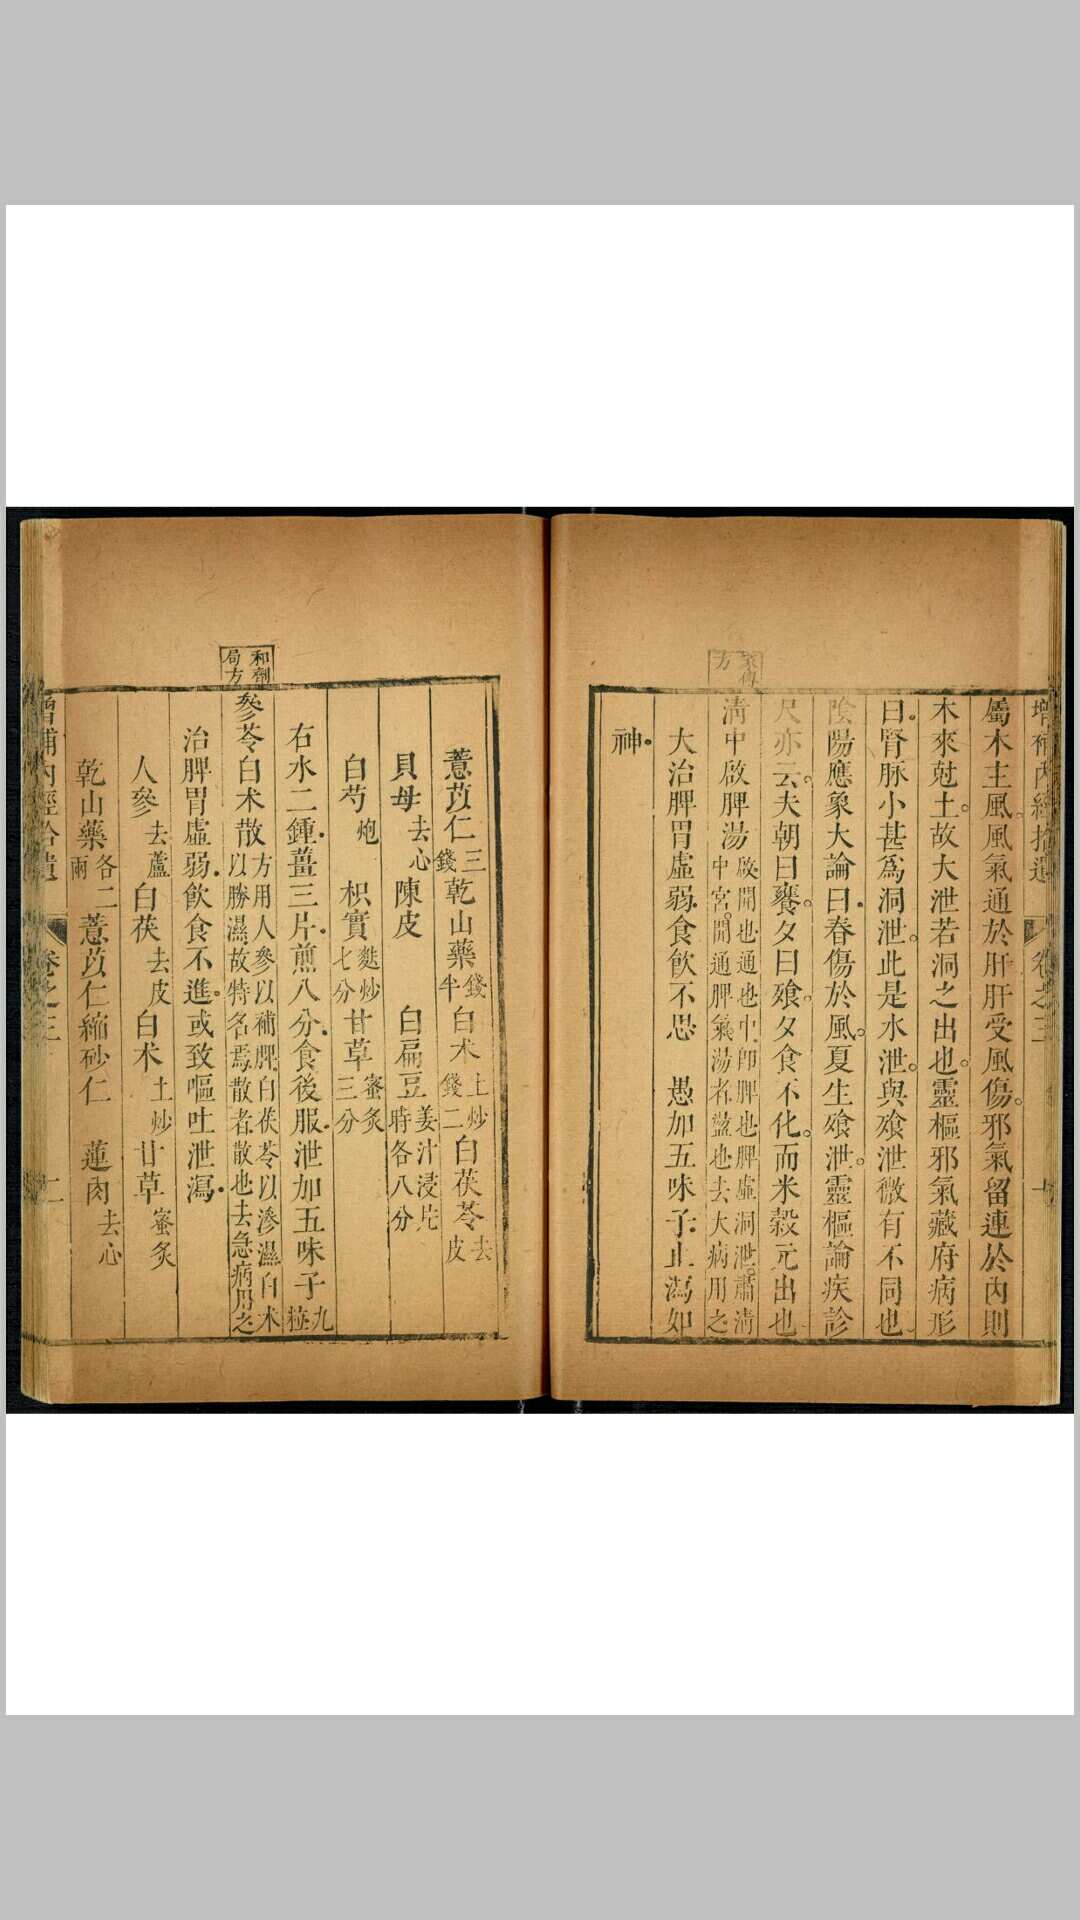 增補內經拾遺 卷之三 十
屬木主風風氣通於肝肝受風傷邪氣留連於內則
木來尅土故大泄若洞之出也靈樞邪氣藏府病形
曰腎脉小甚爲洞泄此是水泄與飱泄微有不同也
陰陽應象大論曰春傷於風夏生飱泄靈樞論疾診
尺亦云夫朝曰饔夕曰飱夕食不化而米穀元出也
家傳
方
清中啟脾湯 啟開也通也中卽脾也脾虛洞泄肅清
中宮開通脾氣湯者盪也去大病用之
大治脾胃虛弱食飲不思 愚加五味子止瀉如
神
薏苡仁三錢 乾山藥錢半 白术土炒二錢 白茯苓去皮
貝母去心 陳皮 白扁豆姜汁浸片時各八分
白芍炮 枳實麩炒七分 甘草蜜炙三分
右水二鍾薑三片煎八分食後服泄加五味子九粒
和劑
局方
參苓白术散 方用人參以補脾白茯苓以滲濕白术
以勝濕故特名焉散者散也去急病用之
治脾胃虛弱飲食不進或致嘔吐泄瀉
人參去蘆 白茯去皮 白术土炒 甘草蜜炙
乾山藥各二兩 薏苡仁 縮砂仁 蓮肉去心
增補內經拾遺 卷之三 二